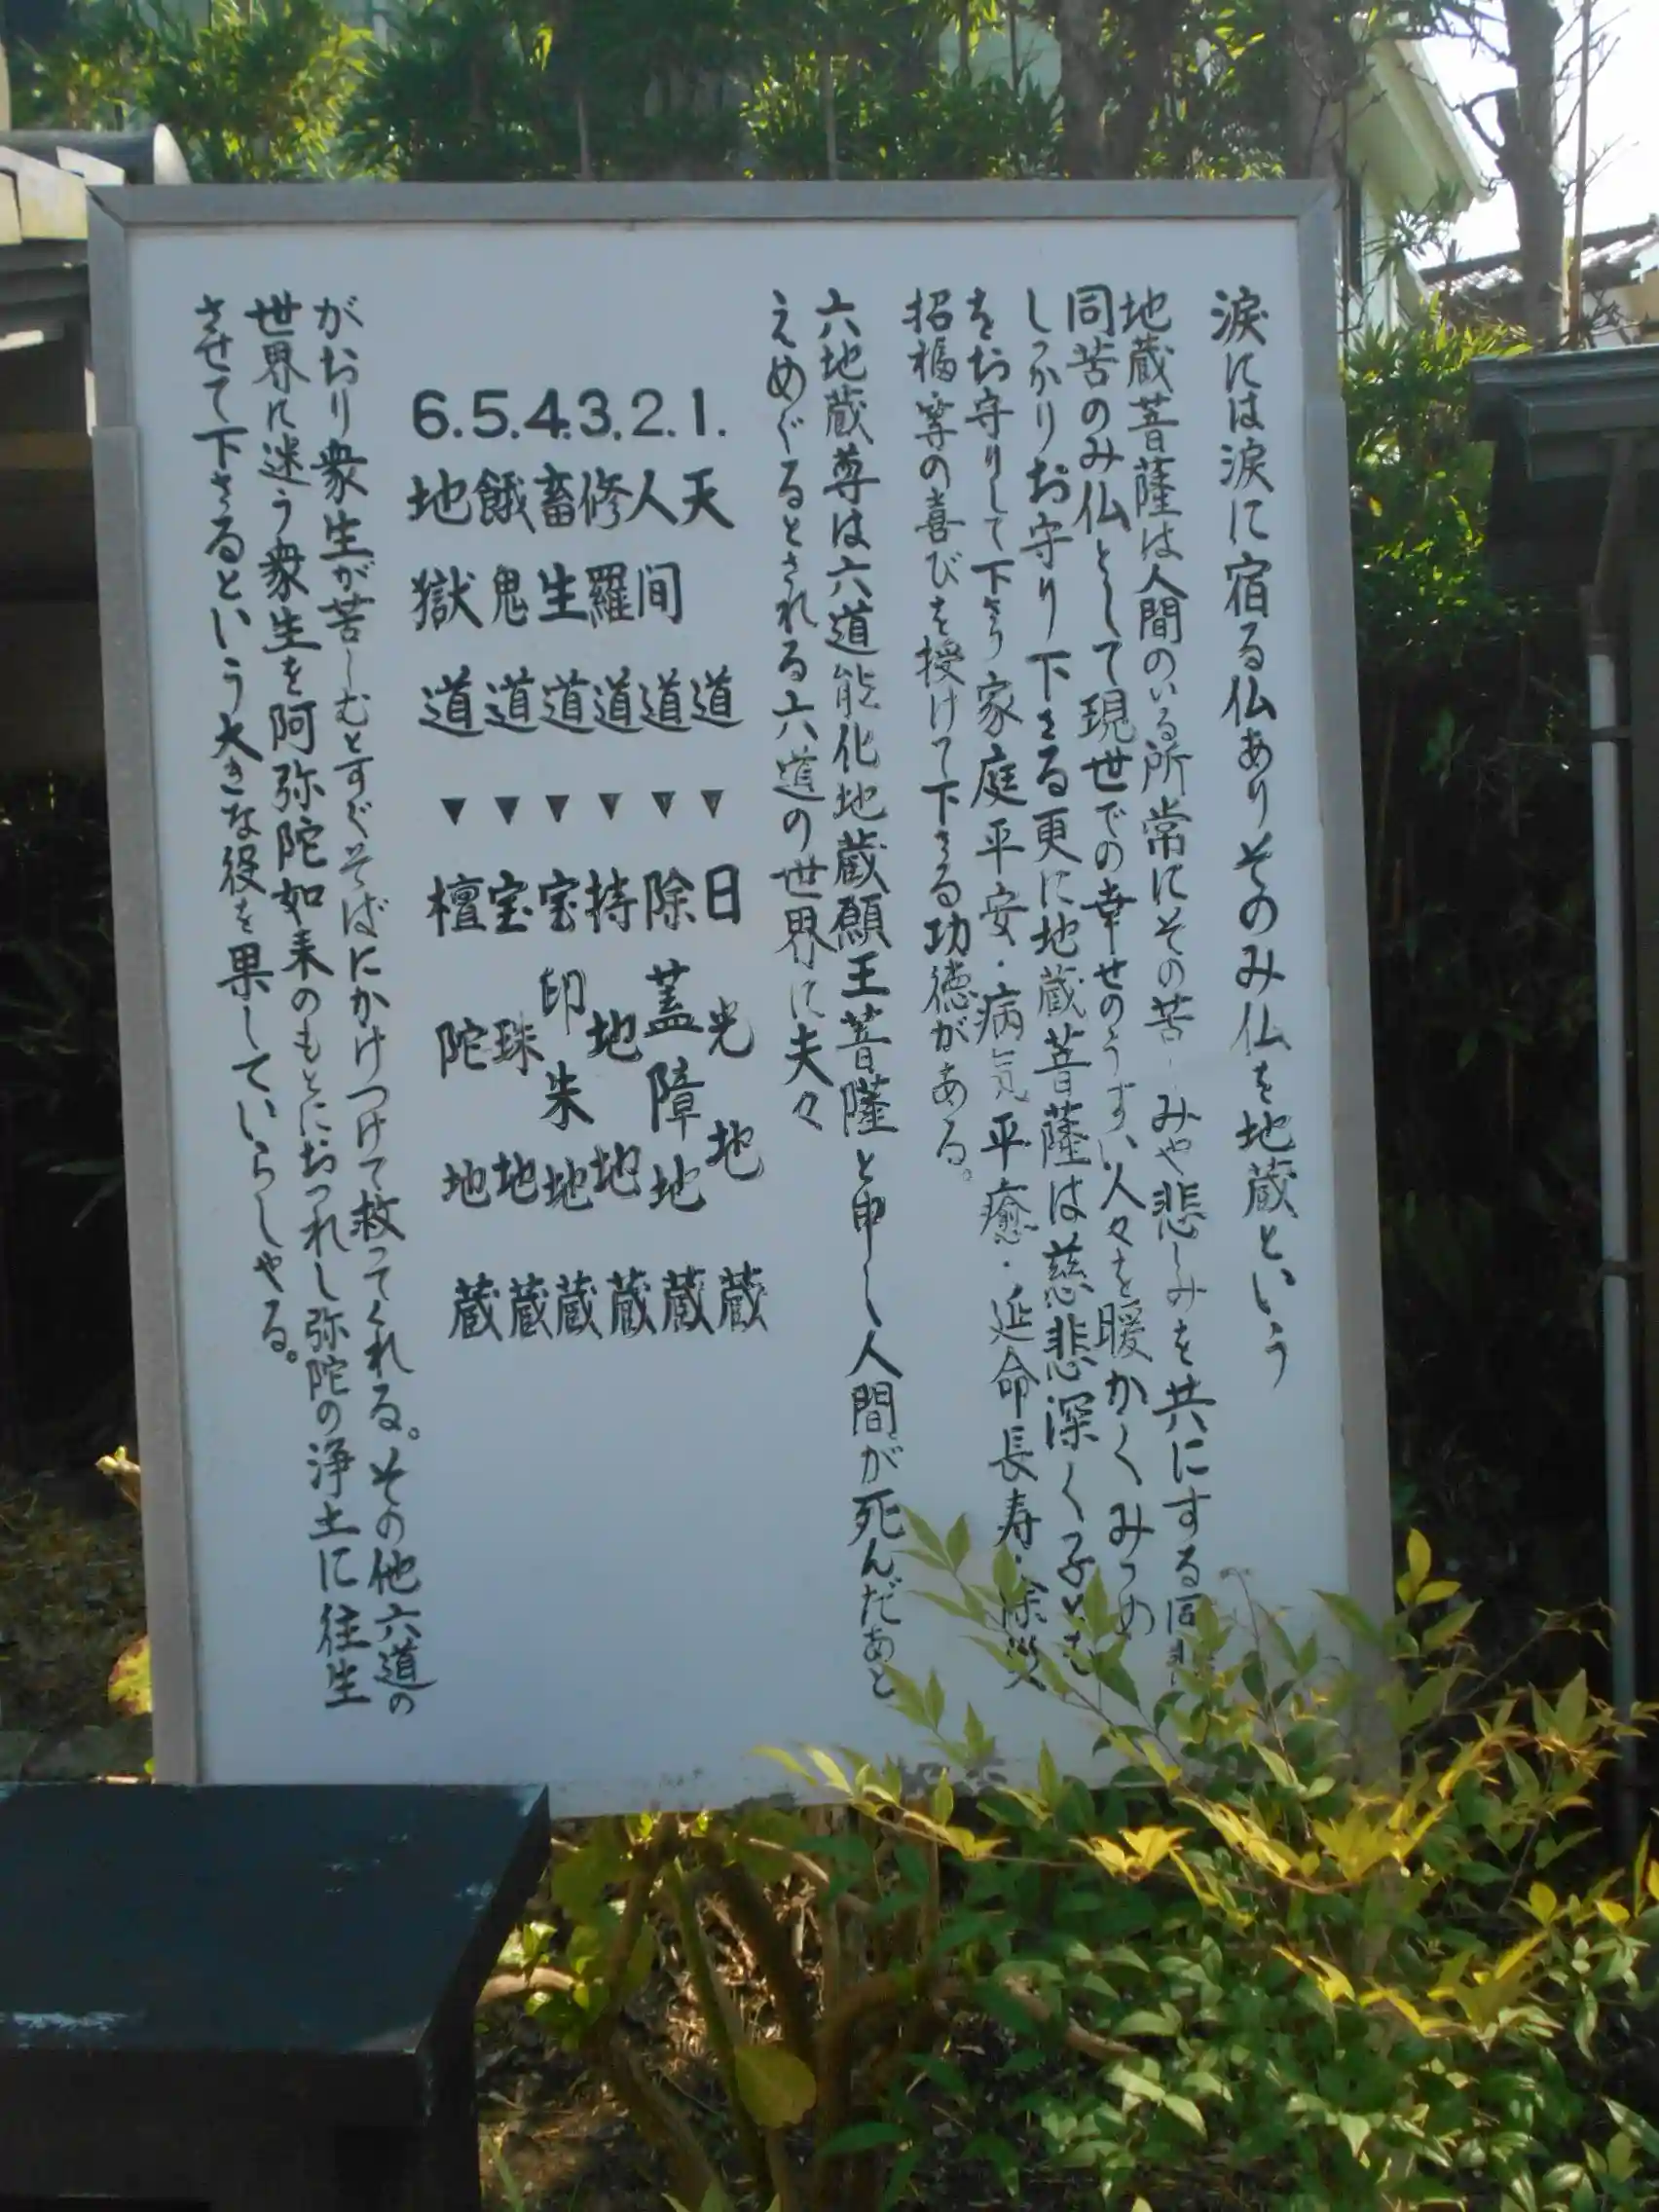 涙には涙に宿る仏ありそのみ仏を地蔵という
地蔵菩薩は人間のいる所常にその苦しみや悲しみを共にする同悲
同苦のみ仏として現世での幸せのうすい人々を暖かくみつめ
しっかりお守り下さる更に地蔵菩薩は慈悲深く子ども
をお守りして下さり家庭平安・病気平癒・延命長寿・除災
招福等の喜びを授けて下さる功徳がある。
六地蔵尊は六道能化地蔵願王菩薩と申し人間が死んだあと
えめぐるとされる六道の世界に夫々
1.天道▼日光地蔵
2.人间道▼除蓋障地蔵
3.修羅道▼持地地蔵
4.畜生道▼宝印朱地蔵
5.餓鬼道▼宝珠地蔵
6.地獄道▼檀陀地蔵
がおり衆生が苦しむとすぐそばにかけつけて救ってくれる。その他六道の
世界に迷う衆生を阿弥陀如来のもとにおつれし弥陀の浄土に往生
させて下さるという大きな役を果していらしゃる。